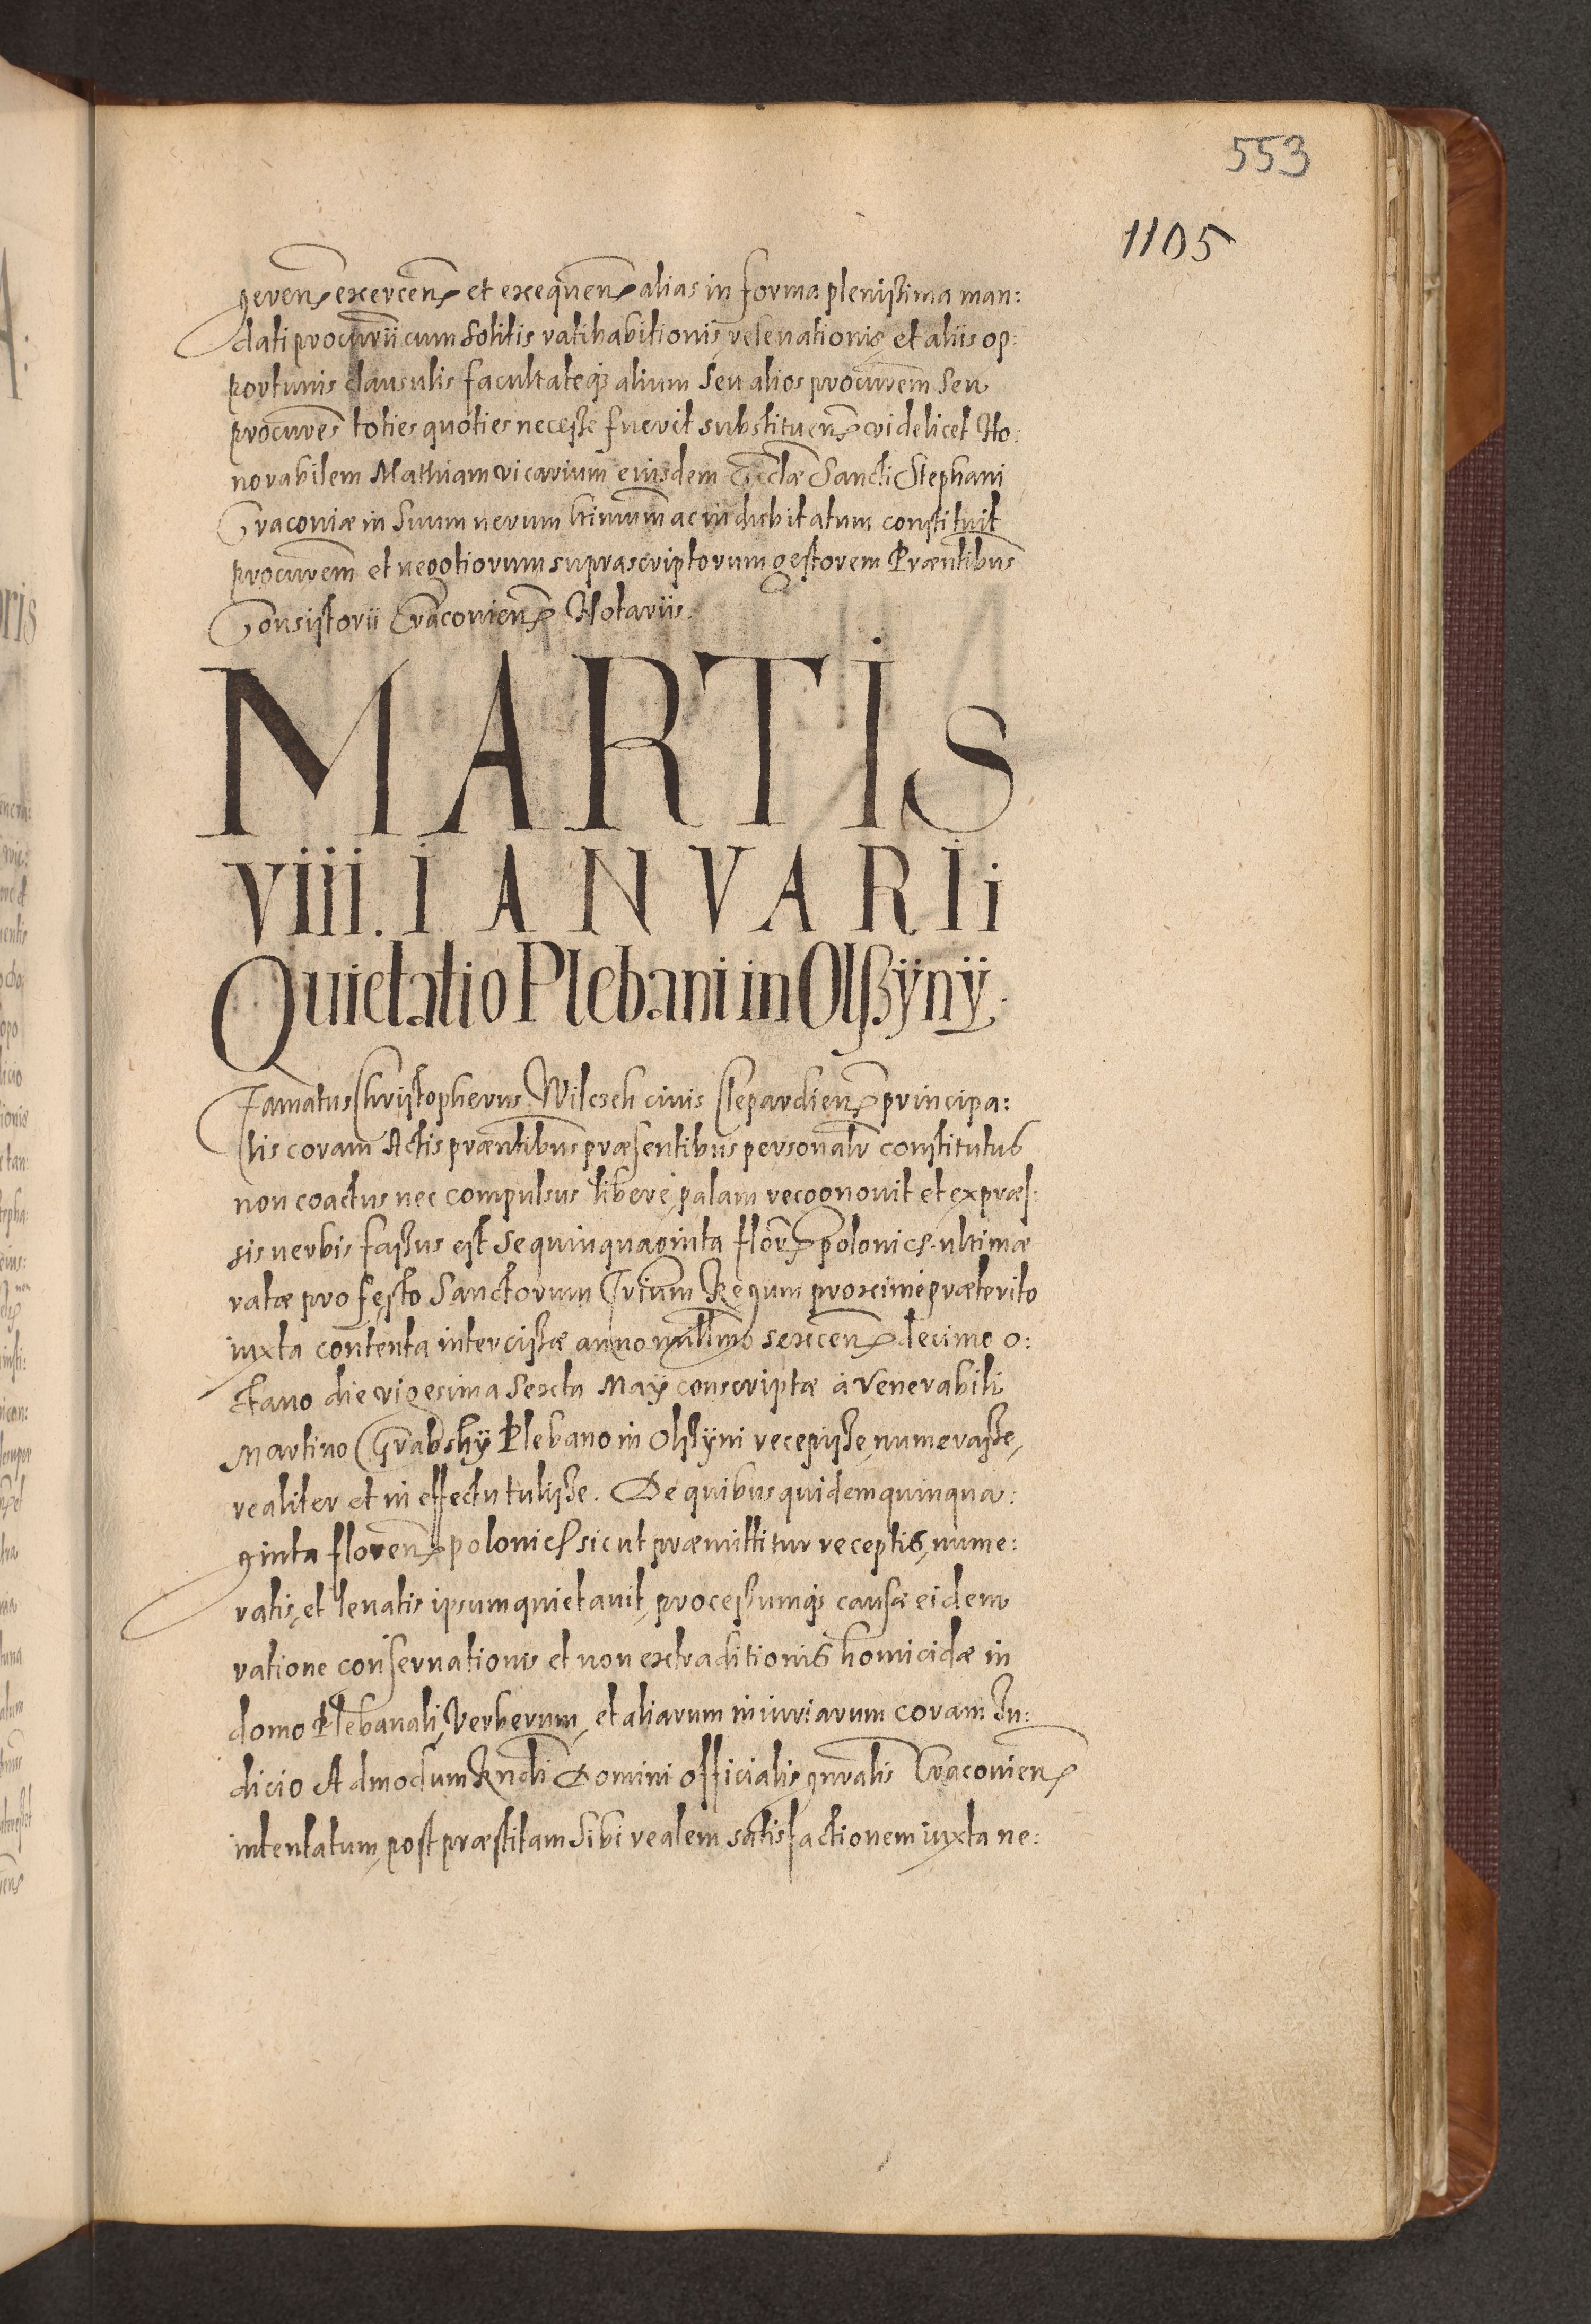 553
1105
gerens exercens et exequens alias in forma plenissima man:
dati procurii cum solitis ratihabitionis, releuationis, et aliis op:
portunis clausulis facultateqȝ alium seu alios procurem seu
procures toties quoties necesse fuerit substituens videlicet Ho:
norabilem Mathiam vicarium eiusdem Ecclæ Sancti Stephani
Cracouiæ in suum verum ltimum ac indubitatum constituit
procurem et negotiorum suprascriptorum gestorem Præntibus
Consistorii Cracouiens Notariis.
MARTIS
VIII. IANVARII
Quietatio Plebani in Olßÿnÿ.
Famatus Christopherus Wilczek ciuis Clepardiens principa:
lis coram Actis præntibus præsentibus personalr constitutus
non coactus nec compulsus libere, palam recognouit et expræs:
sis uerbis fassus est se quinquaginta flor polonics. ultimæ
ratæ pro festo Sanctorum Trium Regum proxime præterito
iuxta contenta intercisæ anno millimo sexcens decimo o:
ctauo die vigesima sexta Maÿ conscriptæ a Venerabili
Martino Grabskÿ Plebano in Olsÿni recepisse, numerasse,
realiter et in effectu tulisse. De quibus quidem quinqua:
ginta florens polonics sicut præmittitur receptis, nume:
ratis, et leuatis ipsum quietauit, processumqȝ causæ eidem
ratione conseruationis et non extraditionis homicidæ in
domo Plebanali, Verberum, et aliarum iniuriarum coram Iu:
dicio Admodum Rndi Domini officialis gnralis Cracouiens
intentatum, post præstitam sibi realem satisfactionem iuxta ne: